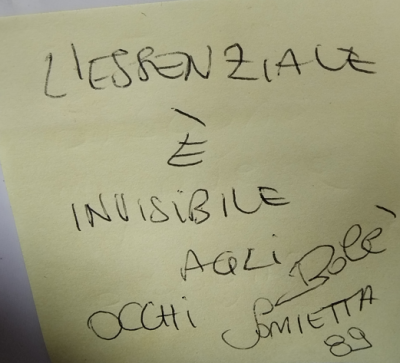 L'ESSENZIALE
È
INVISIBILE
AGLI
OCCHI
Bolè
SOMIETTA
89